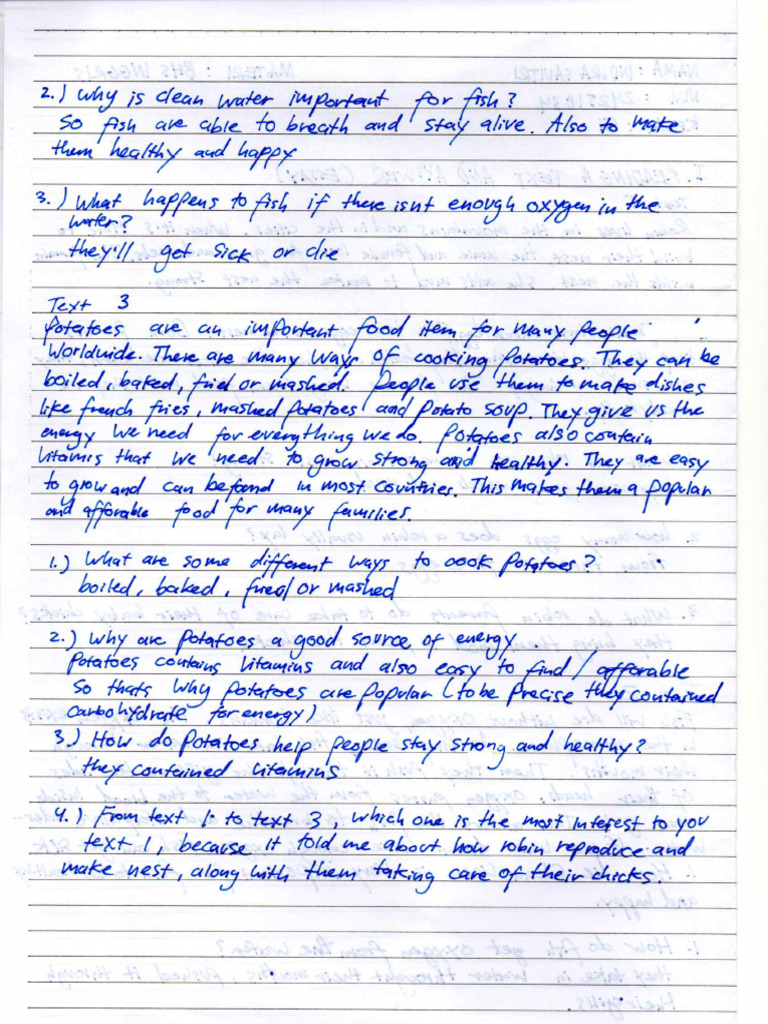 2.) Why is clean water important for fish?
So fish are able to breath and stay alive. Also to make
them healthy and happy
3.) What happens to fish if there isnt enough oxygen in the
water?
they'll get sick or die
Text 3
Potatoes are an important food item for many people
worldwide. There are many ways of cooking potatoes. They can be
boiled, baked, fried or mashed. People use them to make dishes
like french fries, mashed potatoes and potato soup. They give us the
energy we need for everything we do. Potatoes also contain
vitamis that we need to grow strong and healthy. They are easy
to grow and can be found in most countries. This makes them a popular
and afforable food for many families.
1.) What are some different ways to cook potatoes?
boiled, baked, fried/ or mashed
2.) Why are potatoes a good source of energy
Potatoes contains vitamins and also easy to find / afforable
so thats why potatoes are popular (to be precise they contained
carbohydrate for energy)
3.) How do potatoes help people stay strong and healthy?
they contained vitamins
4.) From text 1 to text 3, which one is the most interest to you
text 1, because it told me about how robin reproduce and
make nest, along with them taking care of their chicks.